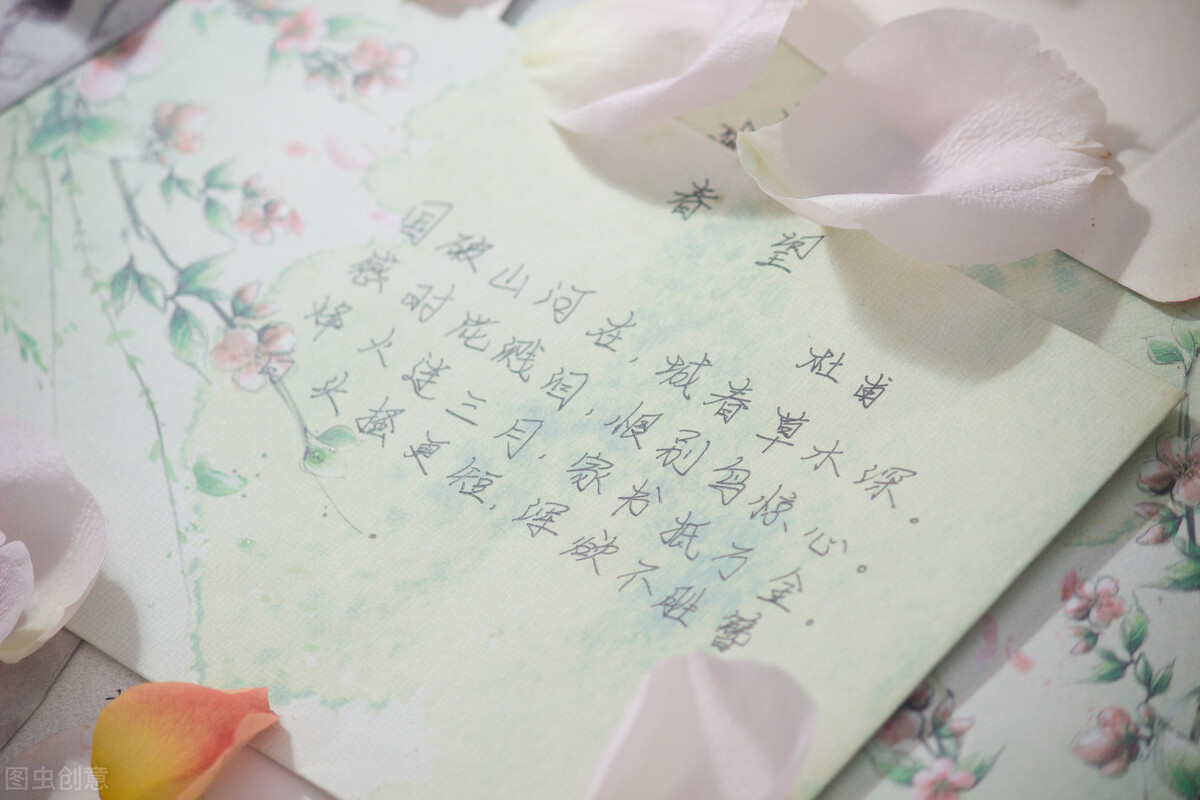 春望
杜甫
国破山河在,城春草木深。
感时花溅泪,恨别鸟惊心。
烽火连三月,家书抵万金。
头搔更短,浑欲不胜簪
图虫创意